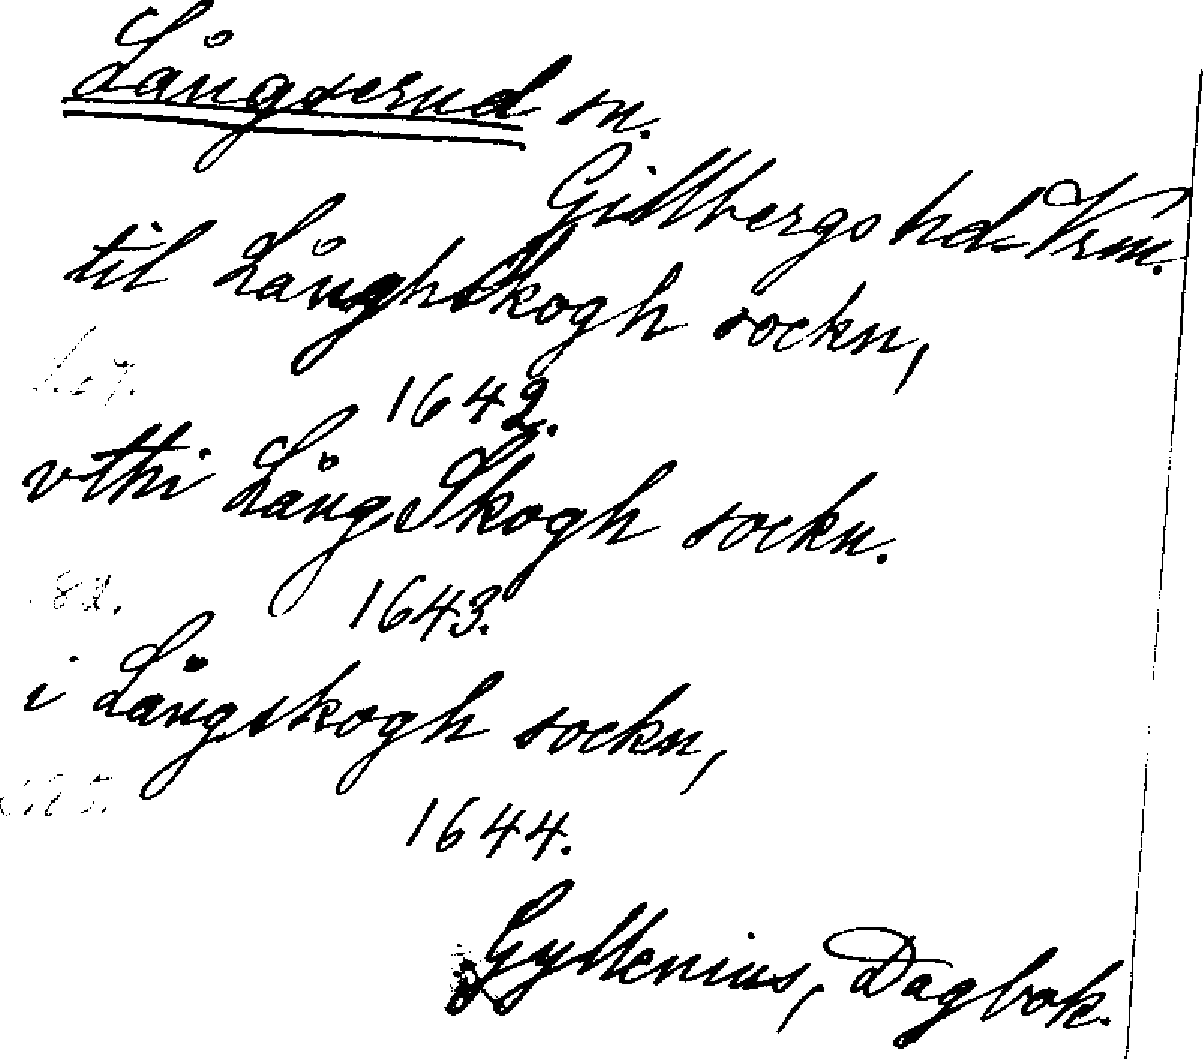 Långserud sn.
Gillbergs hd. Vrm.
til LånghSkogh sockn,
1642.
vthi LångSkogh sockn.
1643.
i Långskogh sockn,
1644.
Gyllenius, Dagbok.